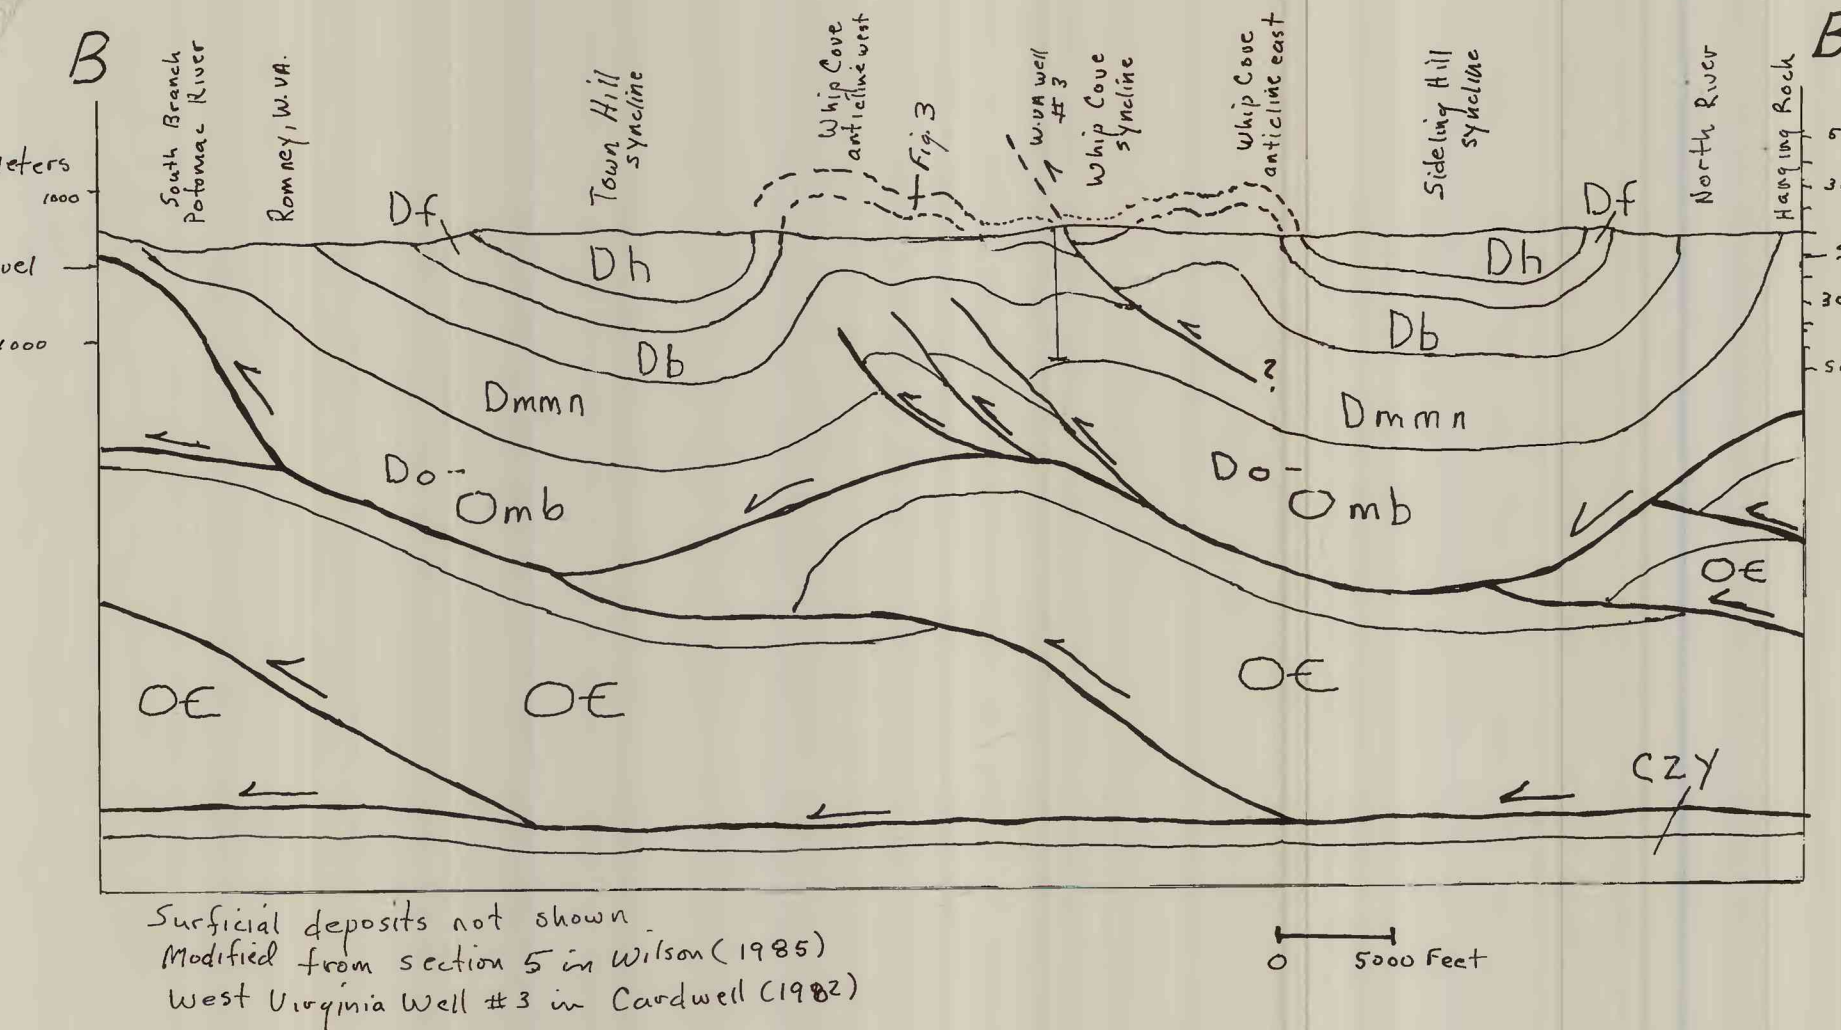 B
South Branch
Potomac River
Romney, W.VA.
Town Hill
syncline
Whip Cove
anticline west
Fig. 3
W.VA Well
# 3
Whip Cove
syncline
Whip Cove
anticline east
Sideling Hill
syncline
North River
Hanging Rock
B
eters
1000
vel
1000
Df
Dh
Df
Dh
Db
Db
?
Dmmn
Dmmn
Do-
Omb
Do-
Omb
OЄ
OЄ
OЄ
OЄ
CZY
Surficial deposits not shown
Modified from section 5 in Wilson (1985)
West Virginia Well # 3 in Cardwell (1982)
0 5000 Feet